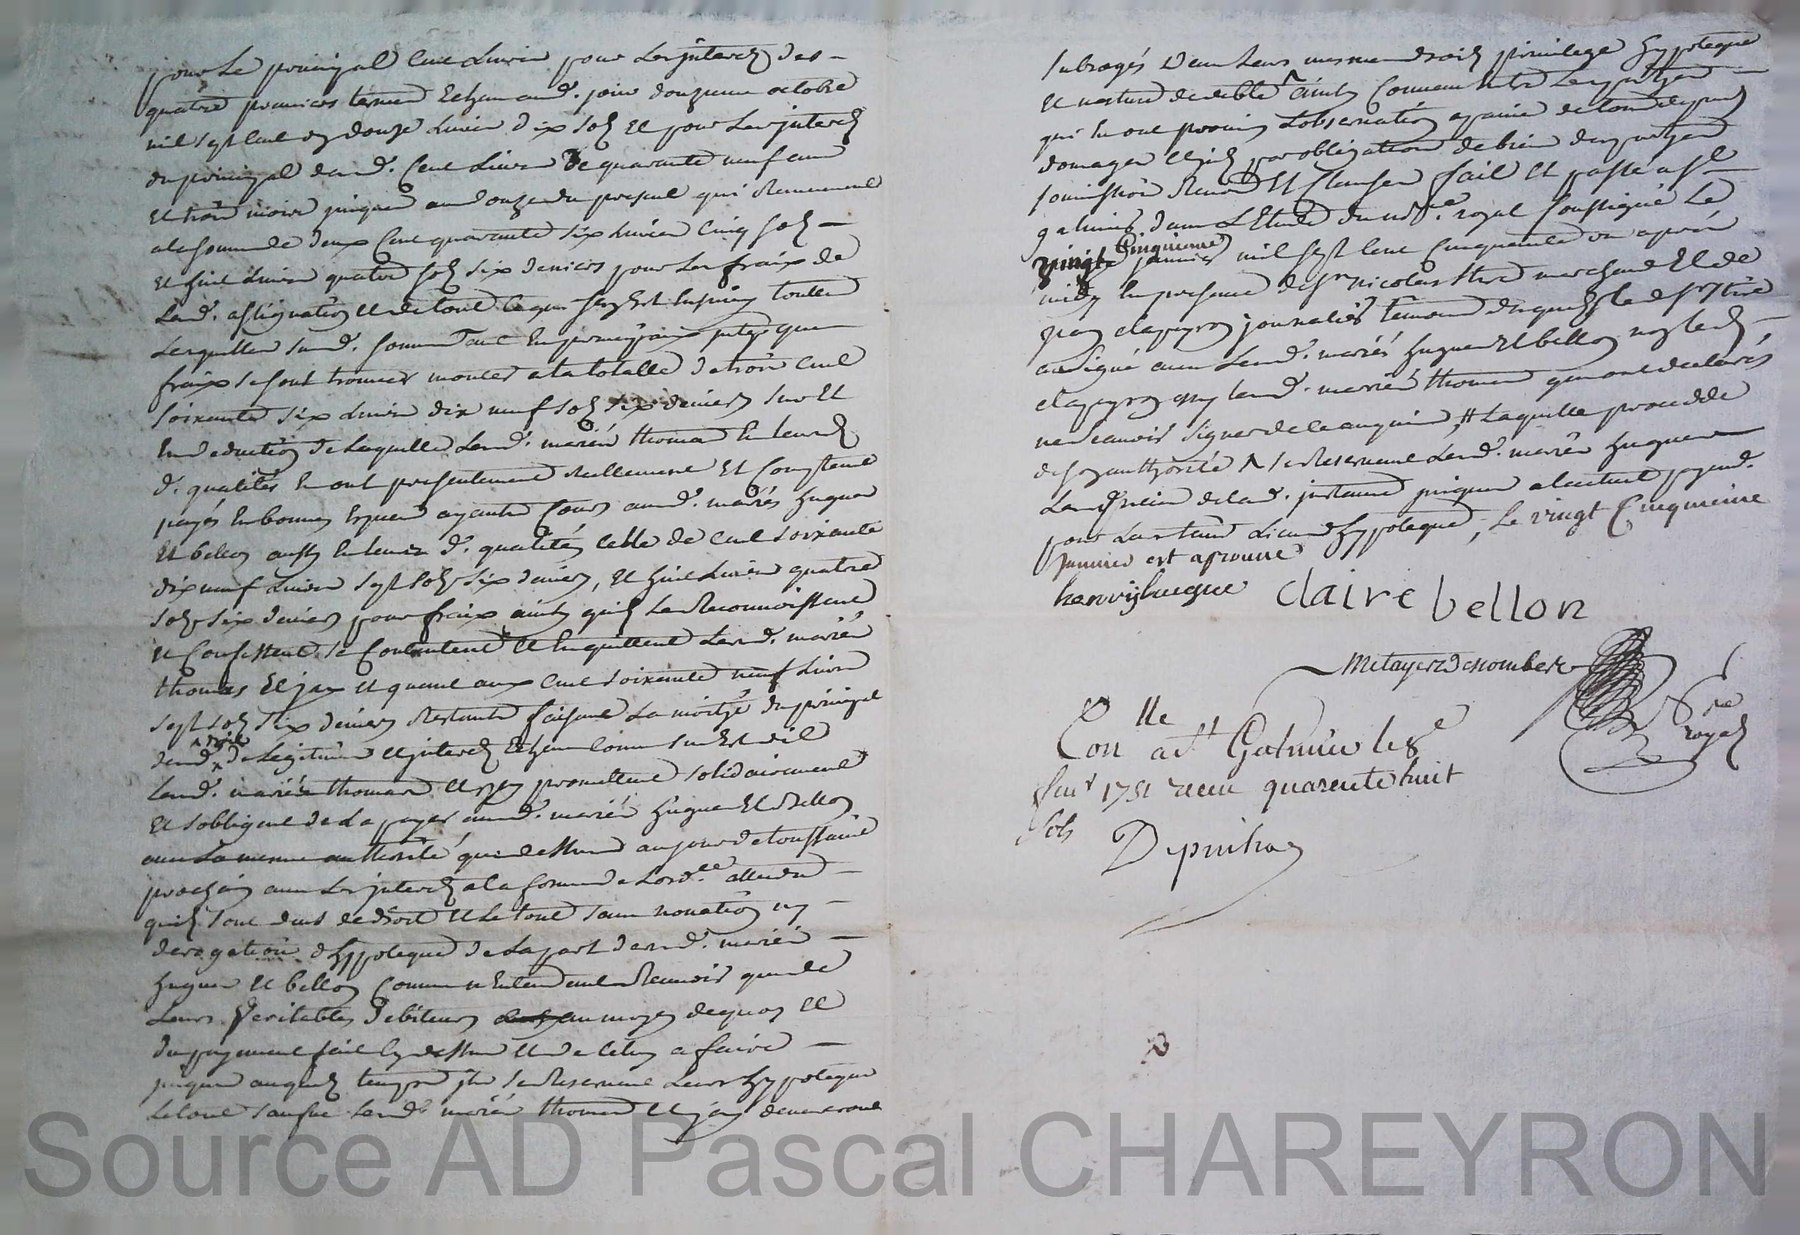 pour le principal Cent Livres pour les jnterets des
quatre premiers termes Echeus aud. jour douzieme octobre
mil sept Cent et douze Livres dix sols Et pour les jnterets
du principal desd. Cent Livres de quarante neuf ans
Et trois mois jusques au douze du present qui Reviennent
a la somme de deux Cent quarante six Livres Cinq sols
Et huit Livres quatre sols six deniers pour les fraix de
Lad. assignation Et de tout
Lesquelles susd. sommes tant En principaux jnterets que
fraix se sont trouvées monter a la totalle de trois Cent
soixante six Livres dix neuf sols six deniers sur Et
En deduction de Laquelle Lesd. mariés thomas En leursd.
d. qualités En ont presentement Reellement Et Comptant
payés En bonnes Especes ayants Cours auxd. mariés hugues
Et bellon aussy En leurs d. qualités Celle de Cent soixante
dix neuf Livres sept sols six deniers, Et huit Livres quatre
sols six deniers pour fraix ainsy quils Le Reconnoissent
Et Confessent se Contentent Et En quittent Lesd. mariés
thomas Et jean Et quant aux Cent soixante neuf Livres
sept sols six deniers Restants faisant La moitié du principal
desd. droits de Legitime Et jnterets Echeus Comme sus Est dit
Lesd. mariés thomas Et jean promettent solidairement
Et sobligent de La payer auxd. mariés hugues Et Bellon
avec La meme authorité que dessus au jour de toussaint
prochain avec Les jnterets a la forme de Lord.ce attendu
quils sont deus de droit Et Le tout sans novation ny
derogation dhypoteque de La part desd. mariés
hugues Et bellon Comme Entendent Recevoir que de
Leurs veritables debiteurs au moyen dequoy Et
du payement fait Cy dessus Et de Celuy a faire
jusques auquel temps jls se Reservent Leurs hypoteque
Le tout sauf que Lesd. mariés thomas Et jean demeureront
subrogés Dans Leurs mesmes droits privilege hypoteque
Et nature de debte ainsy Convenu Entre Les parties
qui En ont promis Lobservation a peine de tous depens
domages Et jnts par obligation de biens des parties
soumission Renon. Et Clauses fait Et passé a st
galmier dans LEtude du no.re royal soussigné Le
vingt Cinquieme janvier mil sept Cent Cinquante un apres
midy En presence de sr nicolas ... marchand Et de
jean clapeyron journalier temoins desquels led. sr
a signé avec Lesd. mariés hugues Et bellon non led.
clapeyron ny lesd. mariés thomas qui ont declarés
ne sçavoir signer de ce enquis, # Laquelle procedde
de son authorité ^ se Reservent Lesd. mariés hugues
Lesd. de lad. jnstance jusques a lactuel payemt.
pour La seureté dhypoteque, Le vingt Cinquieme
janvier est aprouvé
henry hugue Claire bellon
Metayer Descombes
N.re royal
Con.lle a st Galmier le 8e
fevr 1751 recu quarente huit
sols
Depuihay
Source AD Pascal CHAREYRON